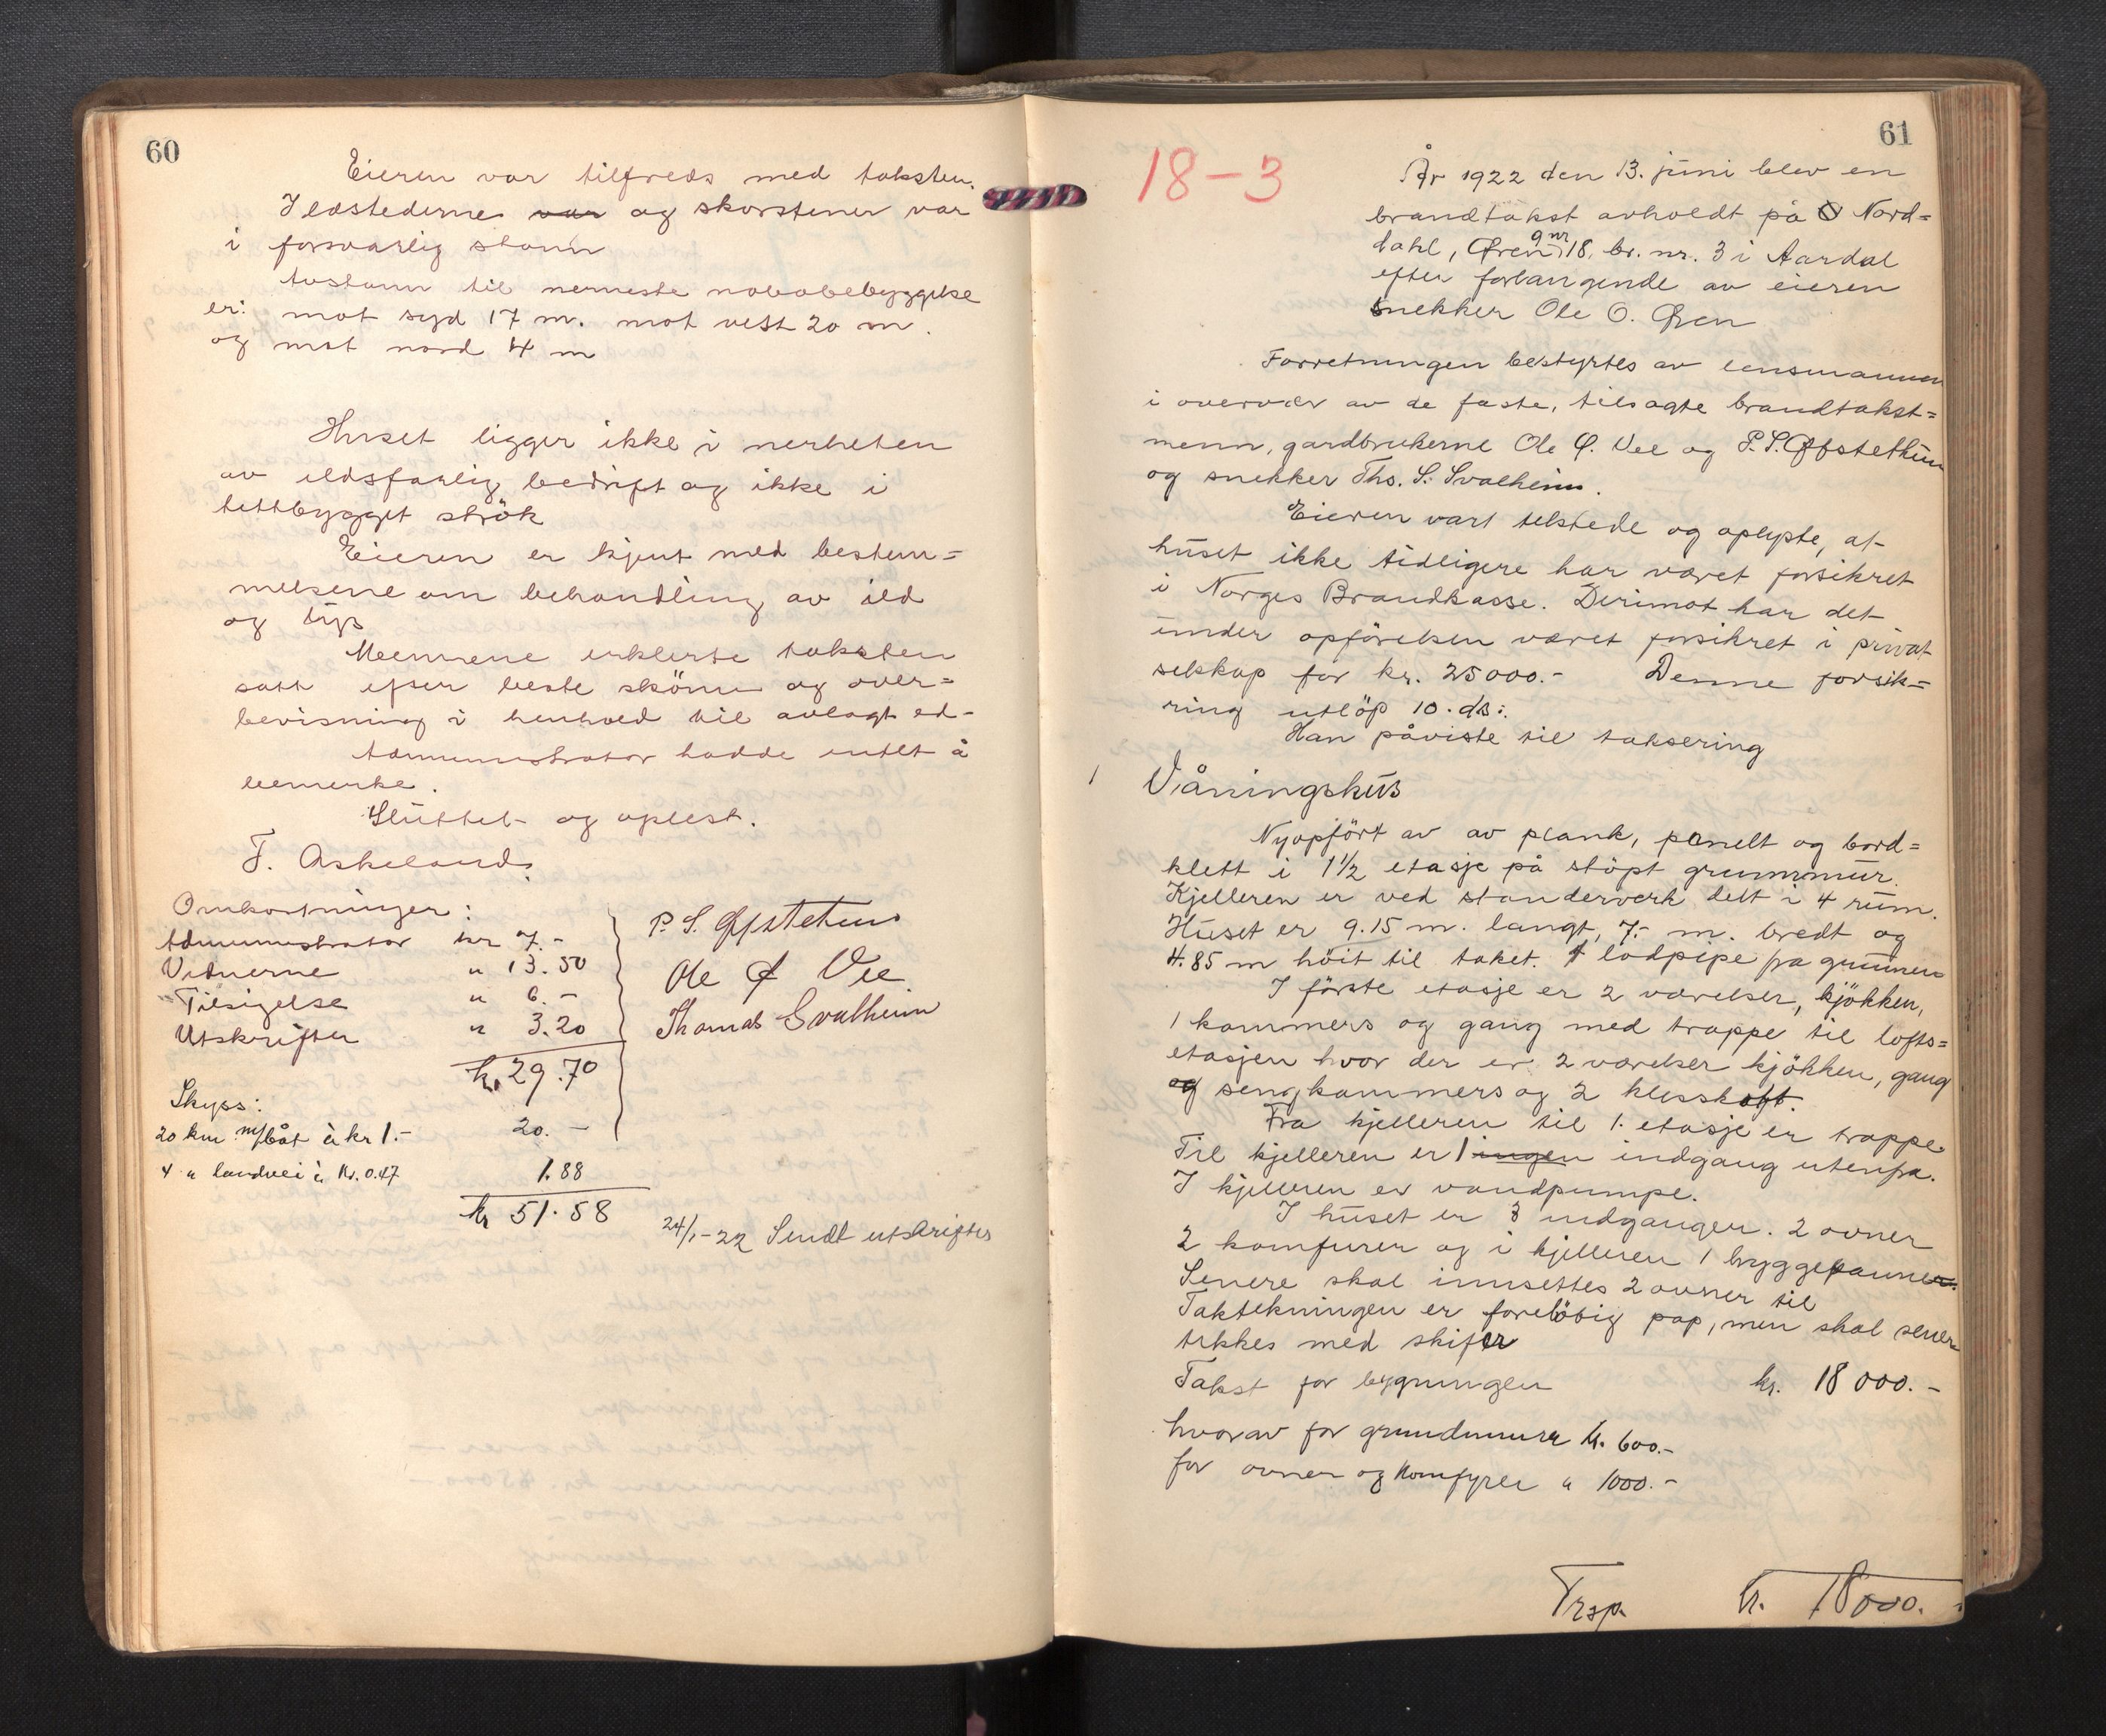 60
Eieren var tilfreds med taksten.
Ildstederne var og skorstener var
i forsvarlig stann
Avstann til nermeste nabobebyggelse
er: mot syd 17 m. mot vest 20 m.
og mot nord 4 m
Huset ligger ikke i nerheten
av ildsfarlig bedrift og ikke i
tettbygget strök
Eieren er kjent med bestem=
melsene om behandling av ild
og lys
Mennene erklerte taksten
satt efter beste skönn og over=
bevisning i henhold til avlagt ed-
Administrator hadde intet å
bemerke.
Sluttet og oplest.
F. Askeland.
Omkostninger:
Administrator kr 7.-
Vidnerne " 13.50
Tilsigelse " 6.-
Utskrifter " 3.20
kr. 29.70
Skyss:
20 km m/båt à kr 1.- 20.-
4 " landvei à kr. 0.47 1.88
kr 51.58
P. S. Øfstethun
Ole Ø Vee
Thomas Svalheim
24/1-22 Sendt utskrifter
61
18-3
År 1922 den 13. juni blev en
brandtakst avholdt på O Nord=
dahl, Øren gnr 18, br. nr. 3 i Aardal
efter forlangende av eieren
snekker Ole O. Øren
Forretningen bestyrtes av lensmannen
i overvær av de faste, tilsagte brandtakst=
menn, gardbrukerne Ole Ø. Vee og P. S. Øfstethun
og snekker Ths. S. Svalheim.
Eieren vart tilstede og oplyste, at
huset ikke tidligere har været forsikret
i Norges Brandkasse. Derimot har det
under opförelsen været forsikret i privat
selskap for kr. 25000.- Denne forsik=
ring utlöp 10. ds:.
Han påviste til taksering
1 Våningshus
Nyopfört av av plank, panelt og bord=
klett i 1 1/2 etasje på stöpt grunnmur.
Kjelleren er ved standerverk delt i 4 rum.
Huset er 9.15 m. langt, 7.- m. bredt og
4.85 m höit til taket. 1 lodpipe fra grunnen
I förste etasje er 2 værelser, kjökken,
1 kammers og gang med trappe til lofts=
etasjen hvor der er 2 værelser kjökken, gang
og sengkammers og 2 klesskott.
Fra kjelleren til 1. etasje er trappe.
Til kjelleren er 1 ingen indgang utenfra.
I kjelleren er vandpumpe.
I huset er 3 indganger. 2 ovner
2 komfurer og i kjelleren 1 bryggepanner.
Senere skal innsettes 2 ovner til
Taktekningen er forelöbig pap, men skal senere
tekkes med skifer
Takst for bygningen kr. 18 000.-
hvorav for grundmurer kr. 600.-
for ovner og komfyrer " 1000.-
Trsp. kr. 18000.-